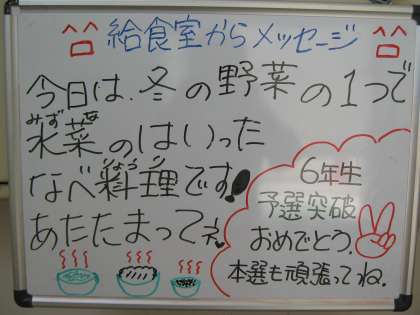 給食室からメッセージ
今日は、冬の野菜の1つで
みずな
水菜のはいった
りょうり
なべ料理です!
あたたまってネ
6年生
予選突破
おめでとう。
本選も頑張ってね。